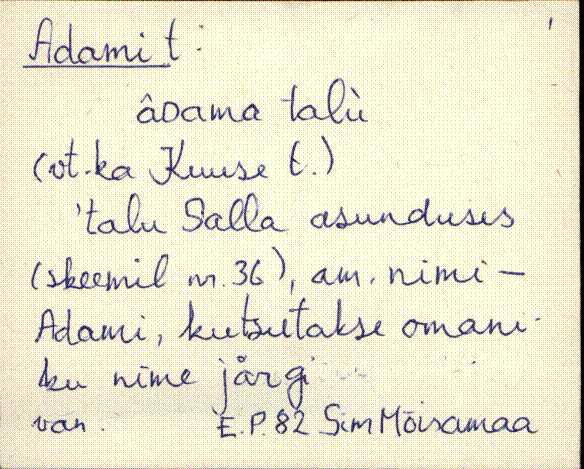 Adami t.
âdama talù
(vt. ka Kuuse t.)
'talu Salla asunduses
(skeemil nr. 36), am. nimi -
Adami, kutsutakse omani-
ku nime järgi
van. E.P. 82 Sim Mõisamaa